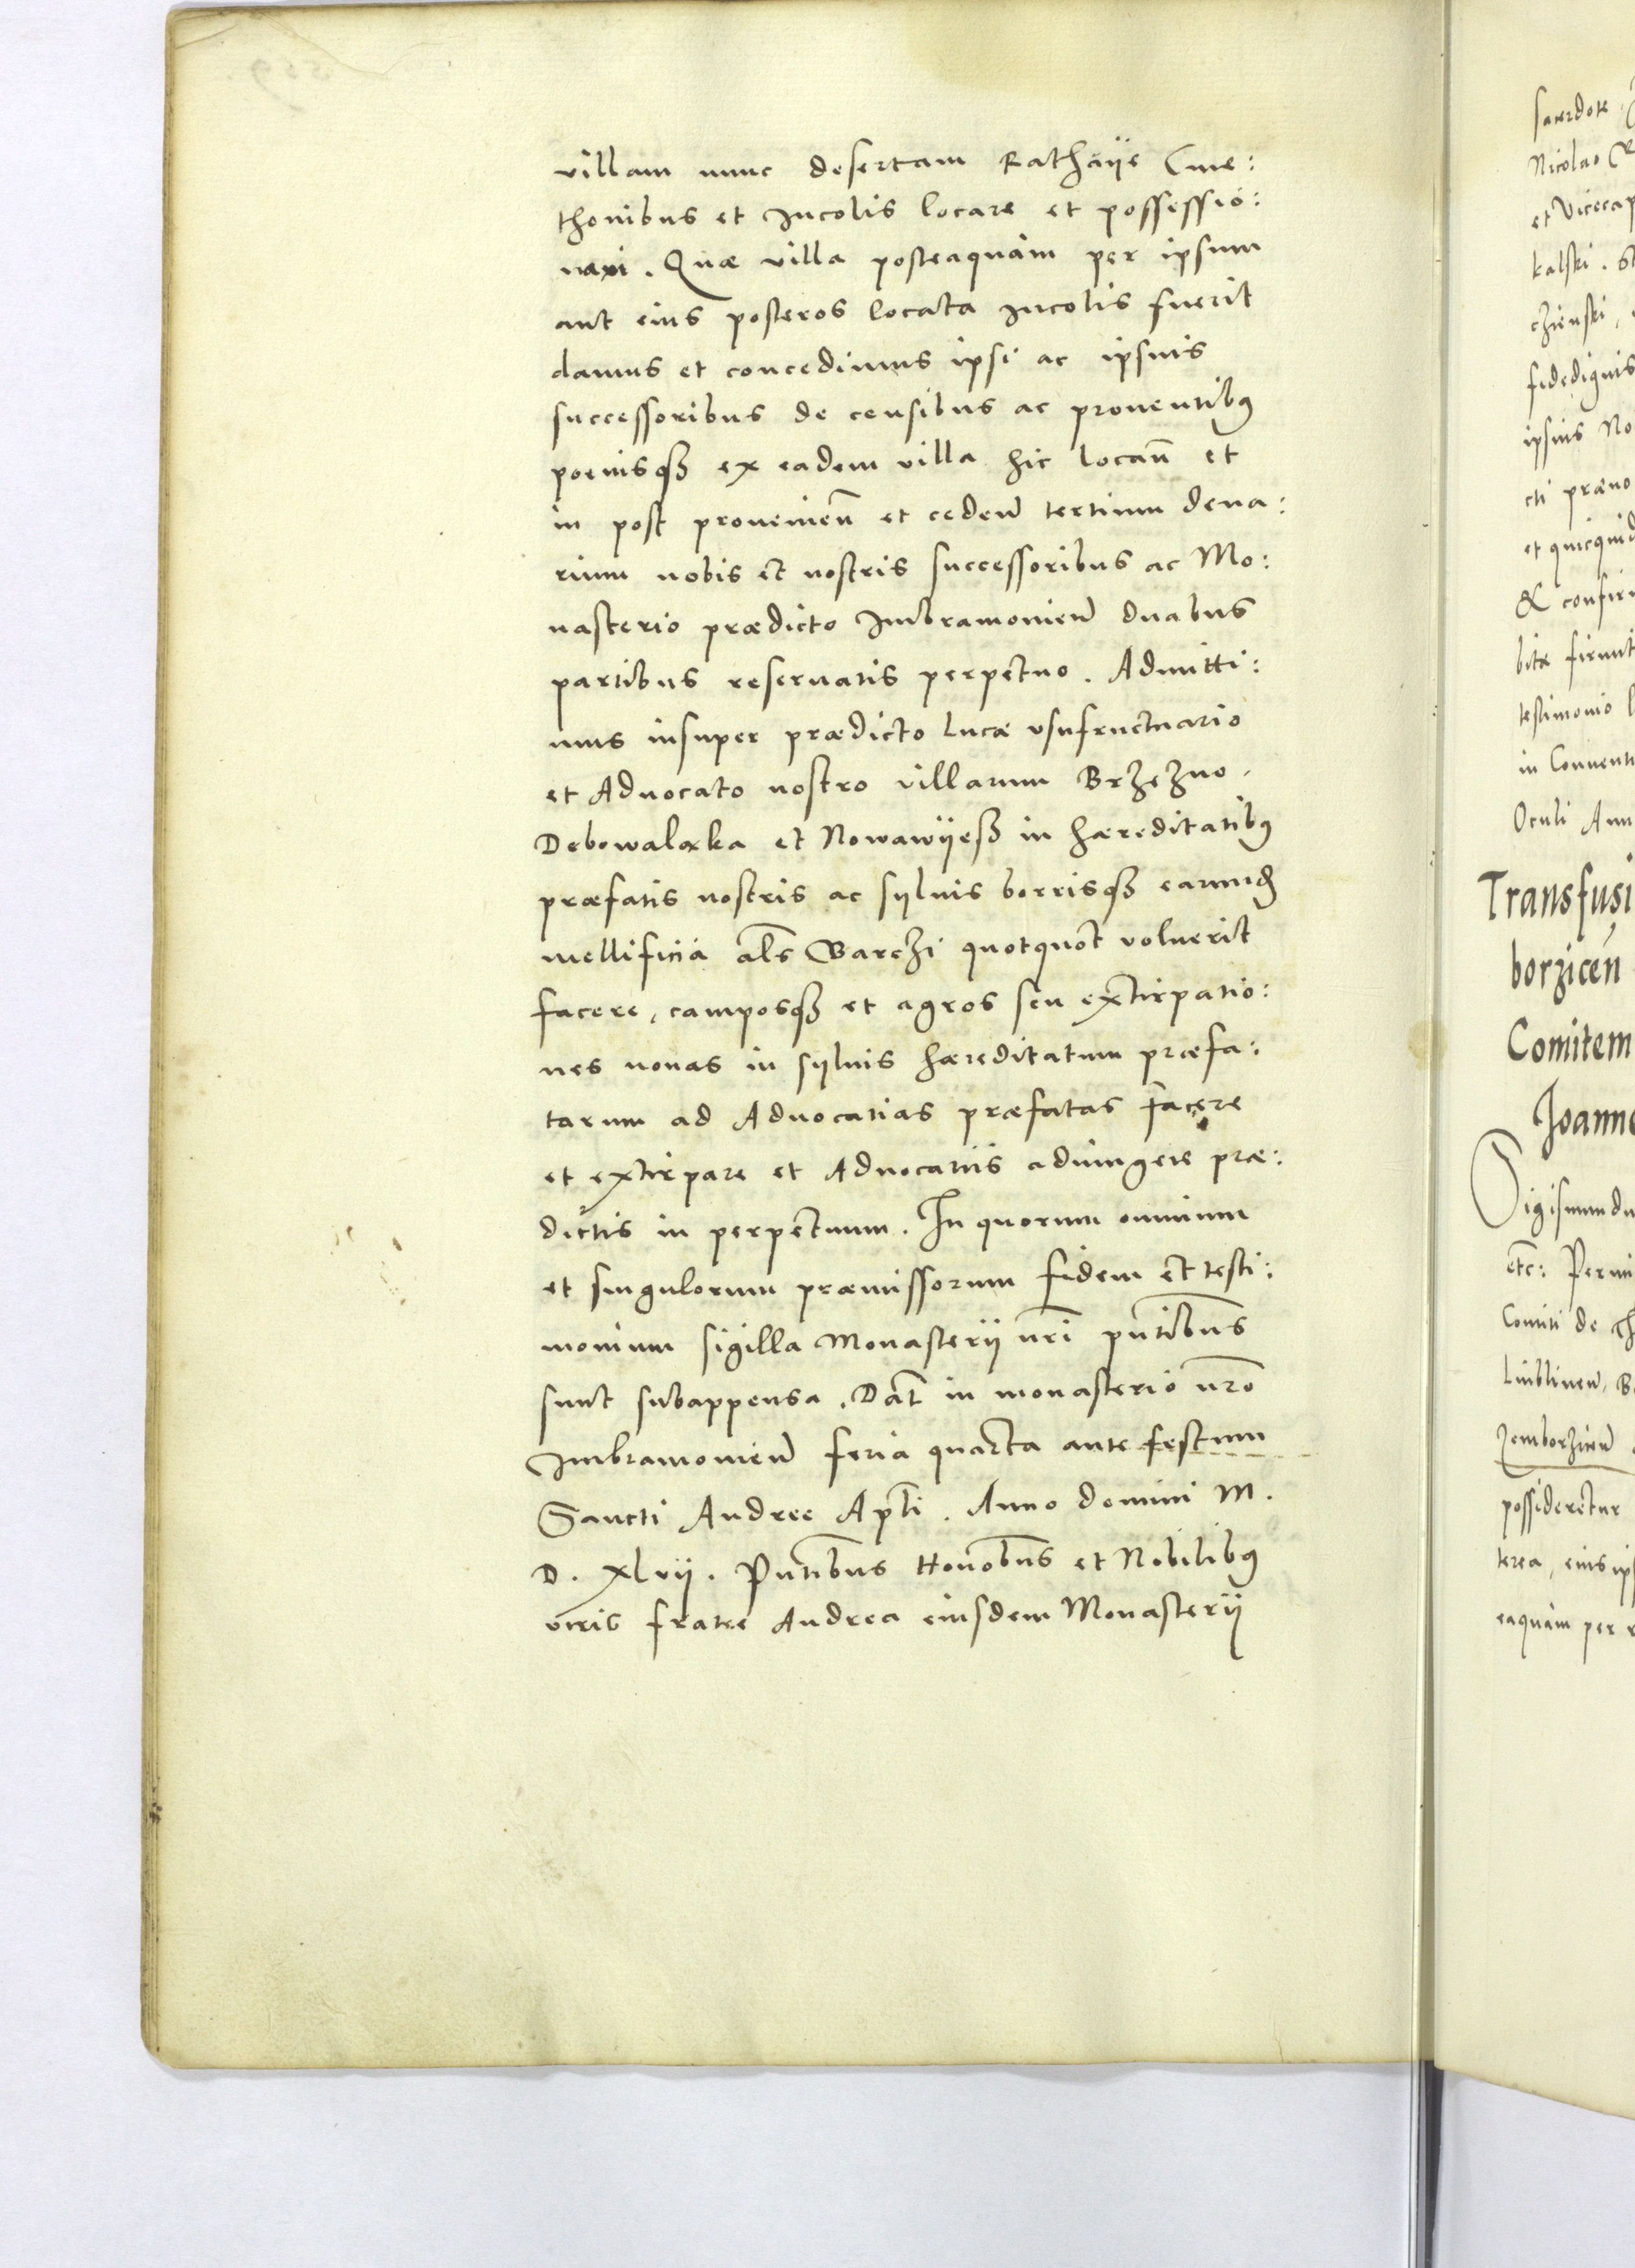 villam nunc desertam Rathaije Cme:
thonibus et incolis locare et possessio:
nari. Quæ villa posteaquam per ipsum
aut eius posteros locata incolis fuerit
damus et concedimus ipsi ac ipsius
successoribus de censibus ac prouentibꝯ
poenisqꝫ ex eadem villa sic locan̄ et
in post prouenien̄ et ceden̄ tertium dena:
rium nobis et nostris successoribus ac Mo:
nasterio prædicto Imbramonien̄ duabus
partibus reseruatis perpetuo. Admitti:
mus insuper prædicto Lucæ vsufructuario
et Aduocato nostro villarum Brzezno,
Debowalaka et Nowawijesz in hæreditatibꝯ
præfatis nostris ac syluis borrisqꝫ earund̄
mellificia al̄s Barczi quotquot voluerit
facere, camposqꝫ et agros seu extirpatio:
nes nouas in syluis hæreditatum præfa:
tarum ad Aduocatias præfatas facere
et extirpare et Aduocatiis adiungere præ:
dictis in perpetuum. In quorum omnium
et singulorum præmissorum fidem et testi:
monium sigilla Monasterij nr̄i pn̄tibus
sunt subappensa. Dat̄ in monasterio nr̄o
Imbramonien̄ feria quarta ante festum
Sancti Andree Apl̄i. Anno domini M.
D. xlvij. Pn̄tibus Honōbus et Nobilibꝯ
viris fratre Andrea eiusdem Monasterij
sacerdote
Nicolao
et Vicecap
kalski. St
chienski,
fidedignis
ipsius No
cti præno
et quicquid
& confir
bitæ firmit
testimonio l
in Conuentu
Oculi Ann
Transfusi
borzicen̄
Comitem
Joanne
Sigismundu
etc: Permi
Comiti de
Lublinen̄, B
Zemborzicen̄
possideretur
terea, eius ip
eaquam per